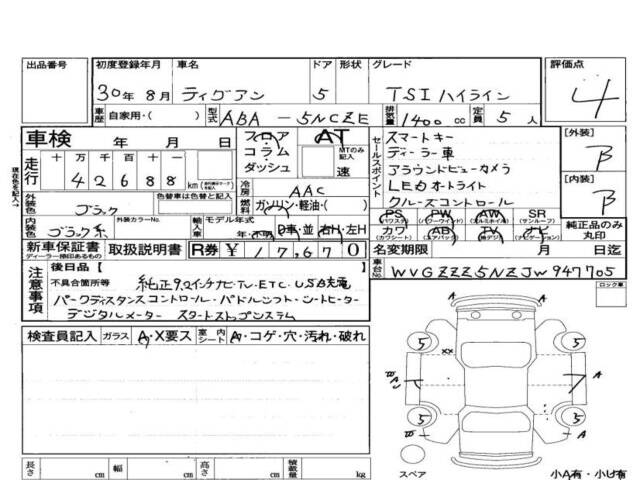 出品番号 初度登録年月 車名 ドア 形状 グレード 評価点
30年 8月 ティグアン 5 TSI ハイライン 4
車歴 自家用・( ) 型式 ABA-5NCZE 排気量 1400 cc 定員 5 人
車検 年 月 日 フロア コラム ダッシュ AT MTのみ記入 速
セールスポイント
スマートキー
ディーラー車
アラウンドビューカメラ
LEDオートライト
クルーズコントロール
[外装] B
[内装] B
現在色を記入→
走行 十 万 千 百 十 km
4 2 6 8 8
冷房 AAC
燃料 ガソリン・軽油・( )
外装色 ブラック 色替車は色替前色
内装色 ブラック系 外装カラーNo. 輸入車 モデル年式 年・不明 D車・並 右H・左H
PS (パワステ) PW (パワーウインド) AW (アルミホイル) SR (サンルーフ)
カワ (カワシート) AB (エアバック) TV (地デジ) ナビ (ナビゲーション)
純正品のみ丸印
新車保証書 ディーラー捺印あるもの 取扱説明書 R券 ¥ 17,670
名変期限 月 日迄
車台No. WVGZZZ5NZJW947705
注意事項
後日品 [ ]
不具合箇所等 純正9.2インチナビ・TV・ETC・USB充電
パークディスタンスコントロール・パドルシフト・シートヒーター
デジタルメーター スタートストップシステム
ロック車
検査員記入 ガラス A・X要ス 室内 シート A・コゲ・穴・汚れ・破れ
5 5 A
xx
5 5
A
スペア 小A有・小U有
長さ cm 幅 cm 高さ cm 積載量 kg